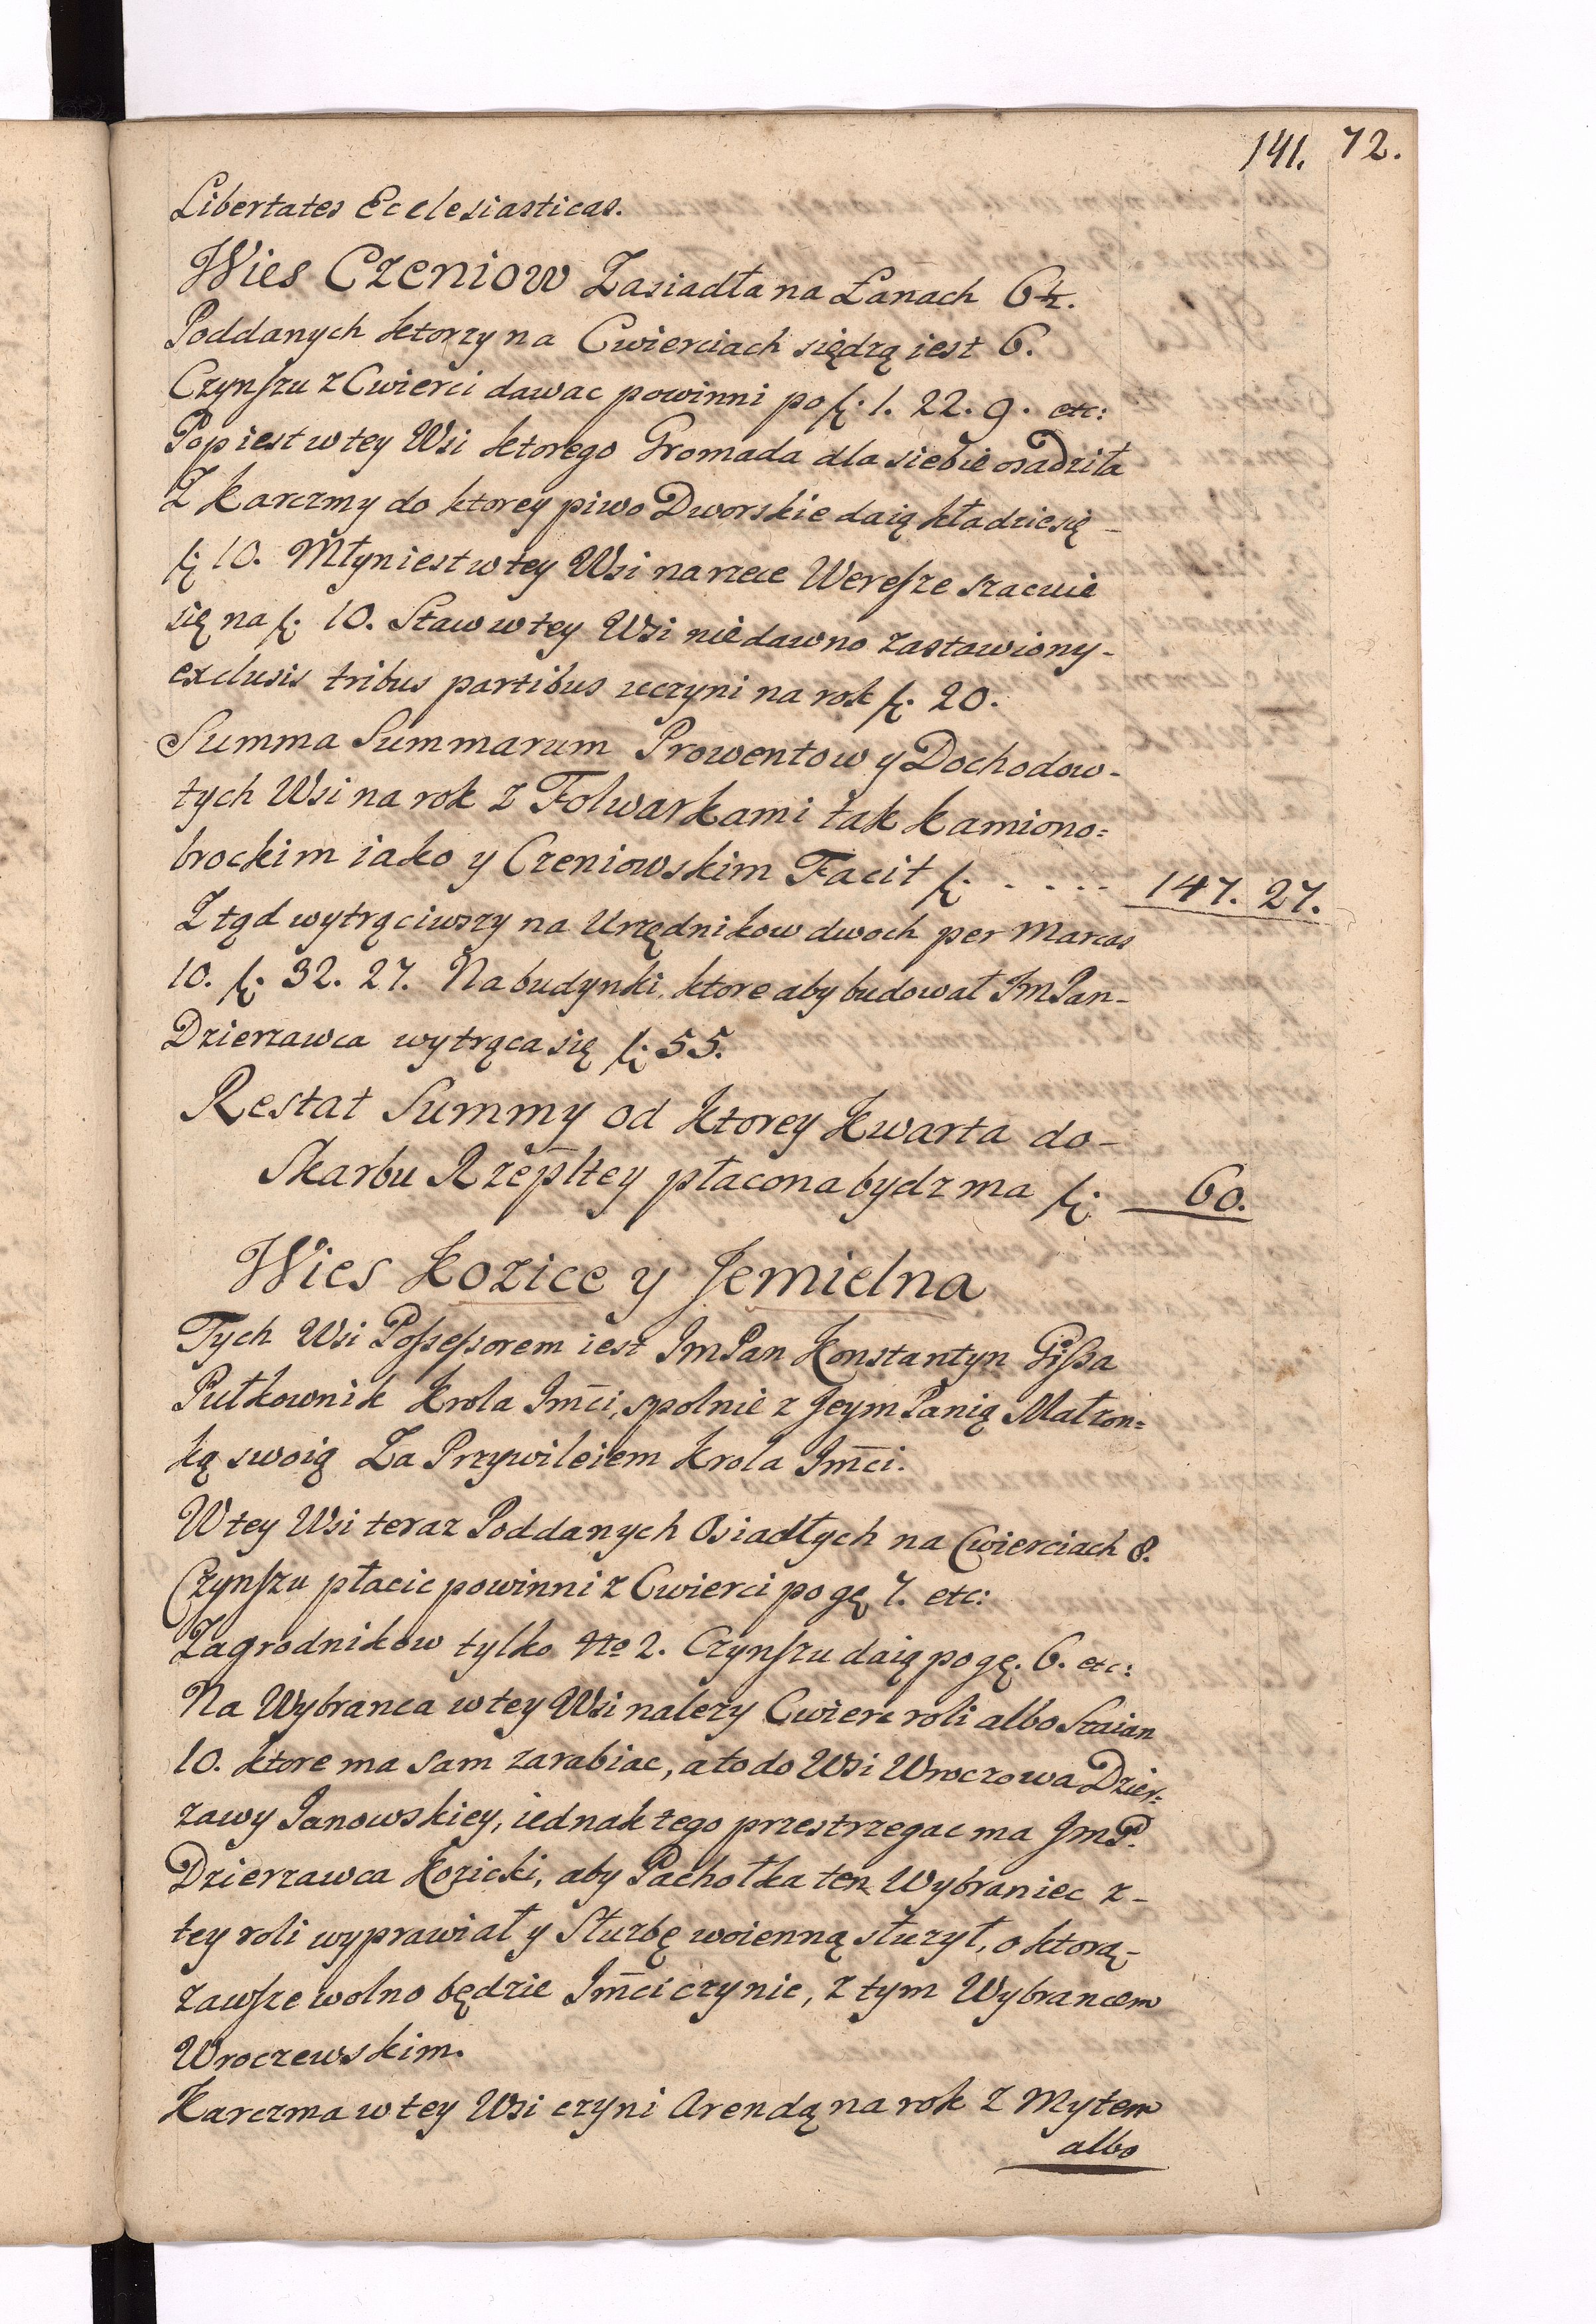 141. 72.
Libertates Ecclesiasticas.
Wies Czeniow Zasiadła na Łanach 6½.
Poddanych ktorzy na Cwierciach siędzą iest 6.
Czynſzu z Cwierci dawac powinni po ſ. 1. 22. 9. etc:
Pop iest w tey Wsi ktorego Gromada dla siebie osadziła
Z Karczmy do ktorey piwo Dworskie daią kładzie się –
ſ. 10. Młyn iest w tey Wsi na rzece Wereſze szacuie
się na ſ. 10. Staw w tey Wsi nie dawno zastawiony –
exclusis tribus partibus uczyni na rok ſ. 20.
Summa Summarum Prowentow y Dochodow –
tych Wsi na rok z Folwarkami tak Kamiono=
brockim iako y Czeniowskim Facit ſ. - - - - - 147. 27.
Z tąd wytrąciwszy na Urzędnikow dwoch per Marcas
10. ſ. 32. 27. Na budynki, ktore aby budował Jm Pan –
Dzierzawca wytrąca się ſ. 55.
Restat Summy od Ktorey Kwarta do –
Skarbu Rzepltey płacona bydz ma ſ. 60.
Wies Kozice y Jemielna
Tych Wsi Poſseſsorem iest Jm Pan Konstantyn Giſsa
Pułkownik Krola Jm̄ci, spolnie z Jeym Panią Małzon=
ką swoią Za Przywileiem Krola Jm̄ci.
W tey Wsi teraz Poddanych Osiadłych na Cwierciach 8.
Czynſzu płacic powinni z Cwierci po gę 7. etc:
Zagrodnikow tylko No 2. Czynſzu daią po gę. 6. etc:
Na Wybranca w tey Wsi nalezy Cwierc roli albo Staian
10. ktore ma sam zarabiac, a to do Wsi Wroczowa Dzier=
zawy Janowskiey, iednak tego przestrzegac ma Jm P.
Dzierzawca Kozicki, aby Pachołka ten Wybraniec z –
tey roli wyprawiał y Słuzbę woienną słuzył, o ktorą –
zawſze wolno będzie Jm̄ci czynic, z tym Wybrancem
Wroczewskim.
Karczma w tey Wsi czyni Arendą na rok z Mytem
albo